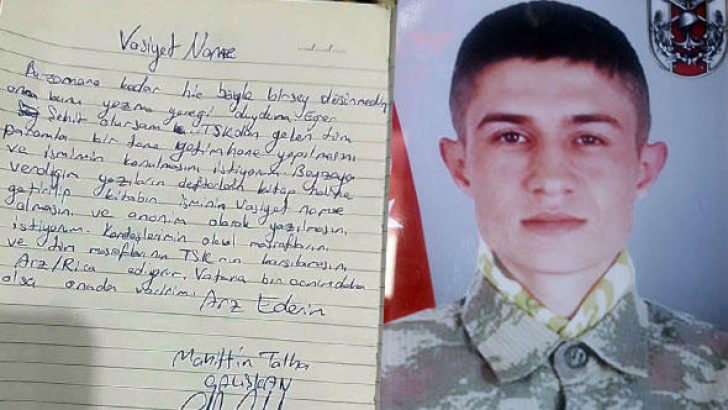 Vasiyet Name ..../..../....
Bu zamana kadar hiç böyle birşey düşünmedim
ama bunu yazma gereği duydum. Eğer
Şehit olursam TSK'dan gelen tüm
paramla bir tane yetimhane yapılmasını
ve ismimin konulmasını istiyorum. Beyzaya
verdiğim yazıların defterlerin kitap haline
getirilip kitabın isminin Vasiyet name
olmasını ve anonim olarak yazılmasını
istiyorum. Kardeşlerimin okul masrafların
ve tüm masraflarını TSK'nın karşılamasını
Arz/Rica ediyorum. Vatana bin canım daha
olsa onada veririm. Arz Ederim
Mahittin Talha
ÇALIŞKAN